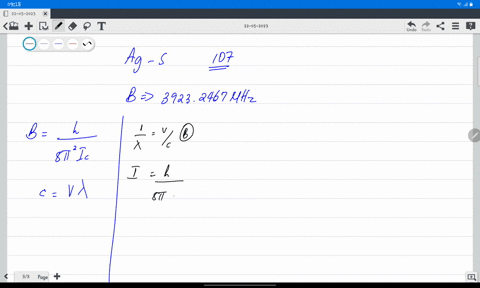 09:18
22-05-2023
22-05-2023
Ag-S 107
B => 3923.2467 MHz
B = h / 8π²Ic
c = νλ
1/λ = ν/c B
I = h / 8π
3/3 Page